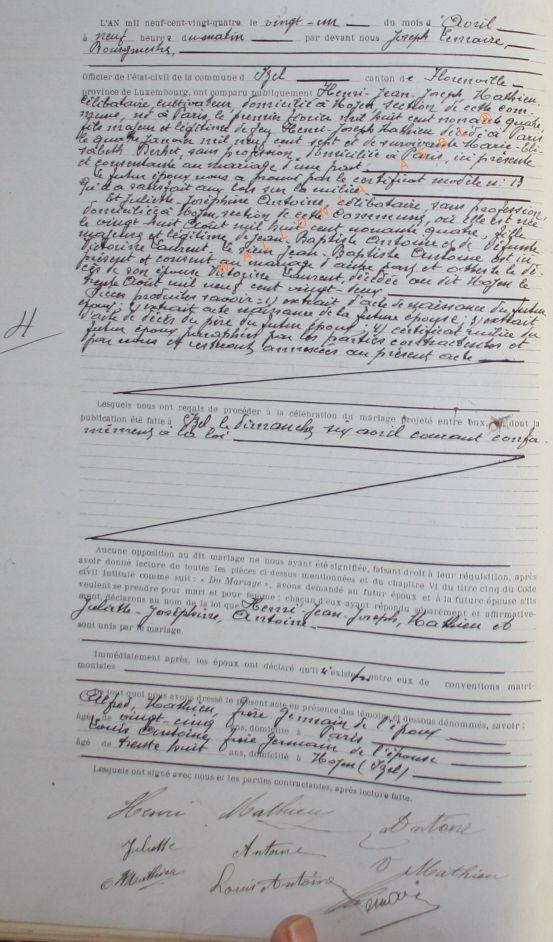 L'AN mil neuf-cent-vingt-quatre le vingt-un du mois d'Avril
à neuf heures du matin par devant nous Joseph Lemaire,
Bourgmestre,
Officier de l'état-civil de la commune d'Izel canton de Florenville
province de Luxembourg, ont comparu publiquement Henri-Jean-Joseph Mathieu,
célibataire, cultivateur, domicilié à Moyen section de cette com-
mune, né à Paris, le premier février mil huit cent nonante quatre,
fils majeur et légitime de feu Henri-Joseph Mathieu décédé à Paris
le quatre janvier mil neuf cent sept et de survivante Marie-Eli-
sabeth sans profession, domiciliée à Paris, ici présente
et consentante au mariage d'une part
Le futur époux nous a prouvé par le certificat modèle n°
qu'il a satisfait aux lois sur la milice
Et Juliette-Joséphine Antoine, célibataire, sans profession,
domiciliée à Moyen, section de cette Commune, où elle est née
le vingt-huit Août mil huit cent nonante quatre, fille
majeure et légitime de Jean-Baptiste Antoine et de défunte
Victoire Laurent, le sieur Jean-Baptiste Antoine est ici
présent et consent au mariage d'autre part et atteste le dé-
cès de son épouse Victoire Laurent, décédée au dit Moyen le
trente Août mil neuf cent vingt-deux
Pièces produites savoir = 1) extrait d'acte de naissance du futur
époux; 2) extrait acte naissance de la future épouse; 3) extrait
d'acte de décès du père du futur époux; 4) certificat milice du
futur époux paraphées par les parties contractantes et
par nous et resteront annexées au présent acte
4
Lesquels nous ont requis de procéder à la célébration du mariage projeté entre eux, et dont la
publication été faite à Izel, le dimanche six avril courant confor-
mément à la loi
Aucune opposition au dit mariage ne nous ayant été signifiée, faisant droit à leur réquisition, après
avoir donné lecture de toutes les pièces ci-dessus mentionnées et du chapitre VI du titre cinq du Code
civil intitulé comme suit : « Du Mariage », avons demandé au futur époux et à la future épouse s'ils
veulent se prendre pour mari et pour femme ; chacun d'eux ayant répondu séparément et affirmative-
ment, déclarons au nom de la loi que Henri-Jean-Joseph, Mathieu et
Juliette-Joséphine, Antoine
sont unis par le mariage.
Immédiatement après, les époux ont déclaré qu'il n'existe pas entre eux de conventions matri-
moniales
De tout quoi nous avons dressé le présent acte en présence des témoins ci dessous dénommés, savoir :
Alfred, Mathieu, frère germain de l'époux
âgé de vingt-cinq ans, domicilié à Paris
Louis Antoine, frère germain de l'épouse
âgé de trente huit ans, domicilié à Moyen (Izel)
Lesquels ont signé avec nous et les parties contractantes, après lecture faite.
Henri Mathieu Antoine
Juliette Antoine Mathieu
Mathieu Louis Antoine Lemaire